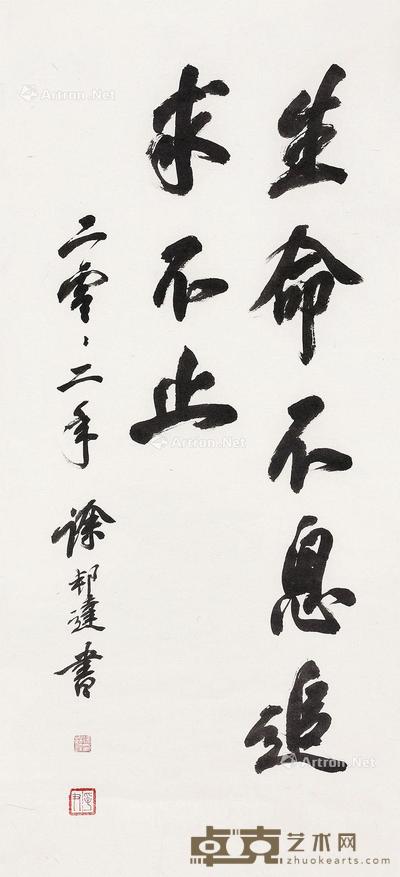 生命不息追
求不止
二零、二年 徐邦達書
Artron.Net
Artron.Net
Artron.Net
卓克艺术网
zhuokearts.com